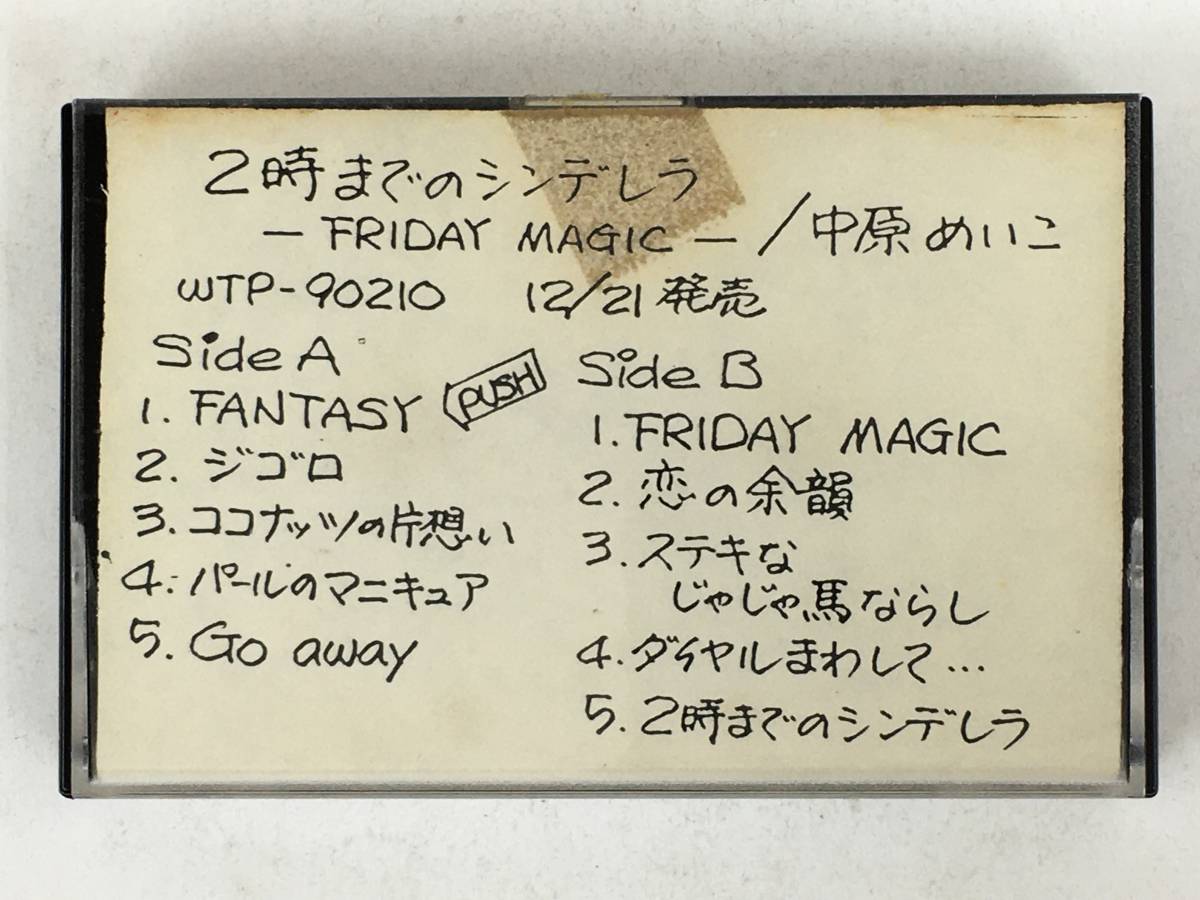 2時までのシンデレラ
― FRIDAY MAGIC ― / 中原めいこ
WTP-90210 12/21 発売
Side A
1. FANTASY PUSH
2. ジゴロ
3. ココナッツの片想い
4. パールのマニキュア
5. Go away
Side B
1. FRIDAY MAGIC
2. 恋の余韻
3. ステキな
じゃじゃ馬ならし
4. ダイヤルまわして…
5. 2時までのシンデレラ